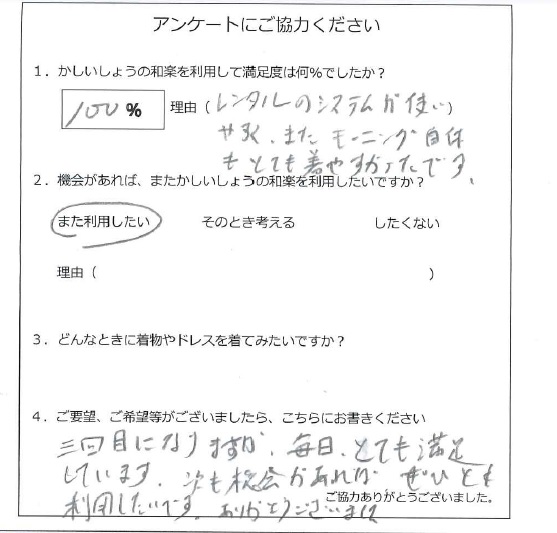 アンケートにご協力ください
1．かしいしょうの和楽を利用して満足度は何%でしたか？
100% 理由（レンタルのシステムが使い）
やすく、また モーニング自体
もとても着やすかったです。
2．機会があれば、またかしいしょうの和楽を利用したいですか？
また利用したい そのとき考える したくない
理由（ ）
3．どんなときに着物やドレスを着てみたいですか？
4．ご要望、ご希望等がございましたら、こちらにお書きください
三回目になりますが、毎回、とても満足
しています。次も機会があれば ぜひとも
利用したいです。ありがとうございました
ご協力ありがとうございました。